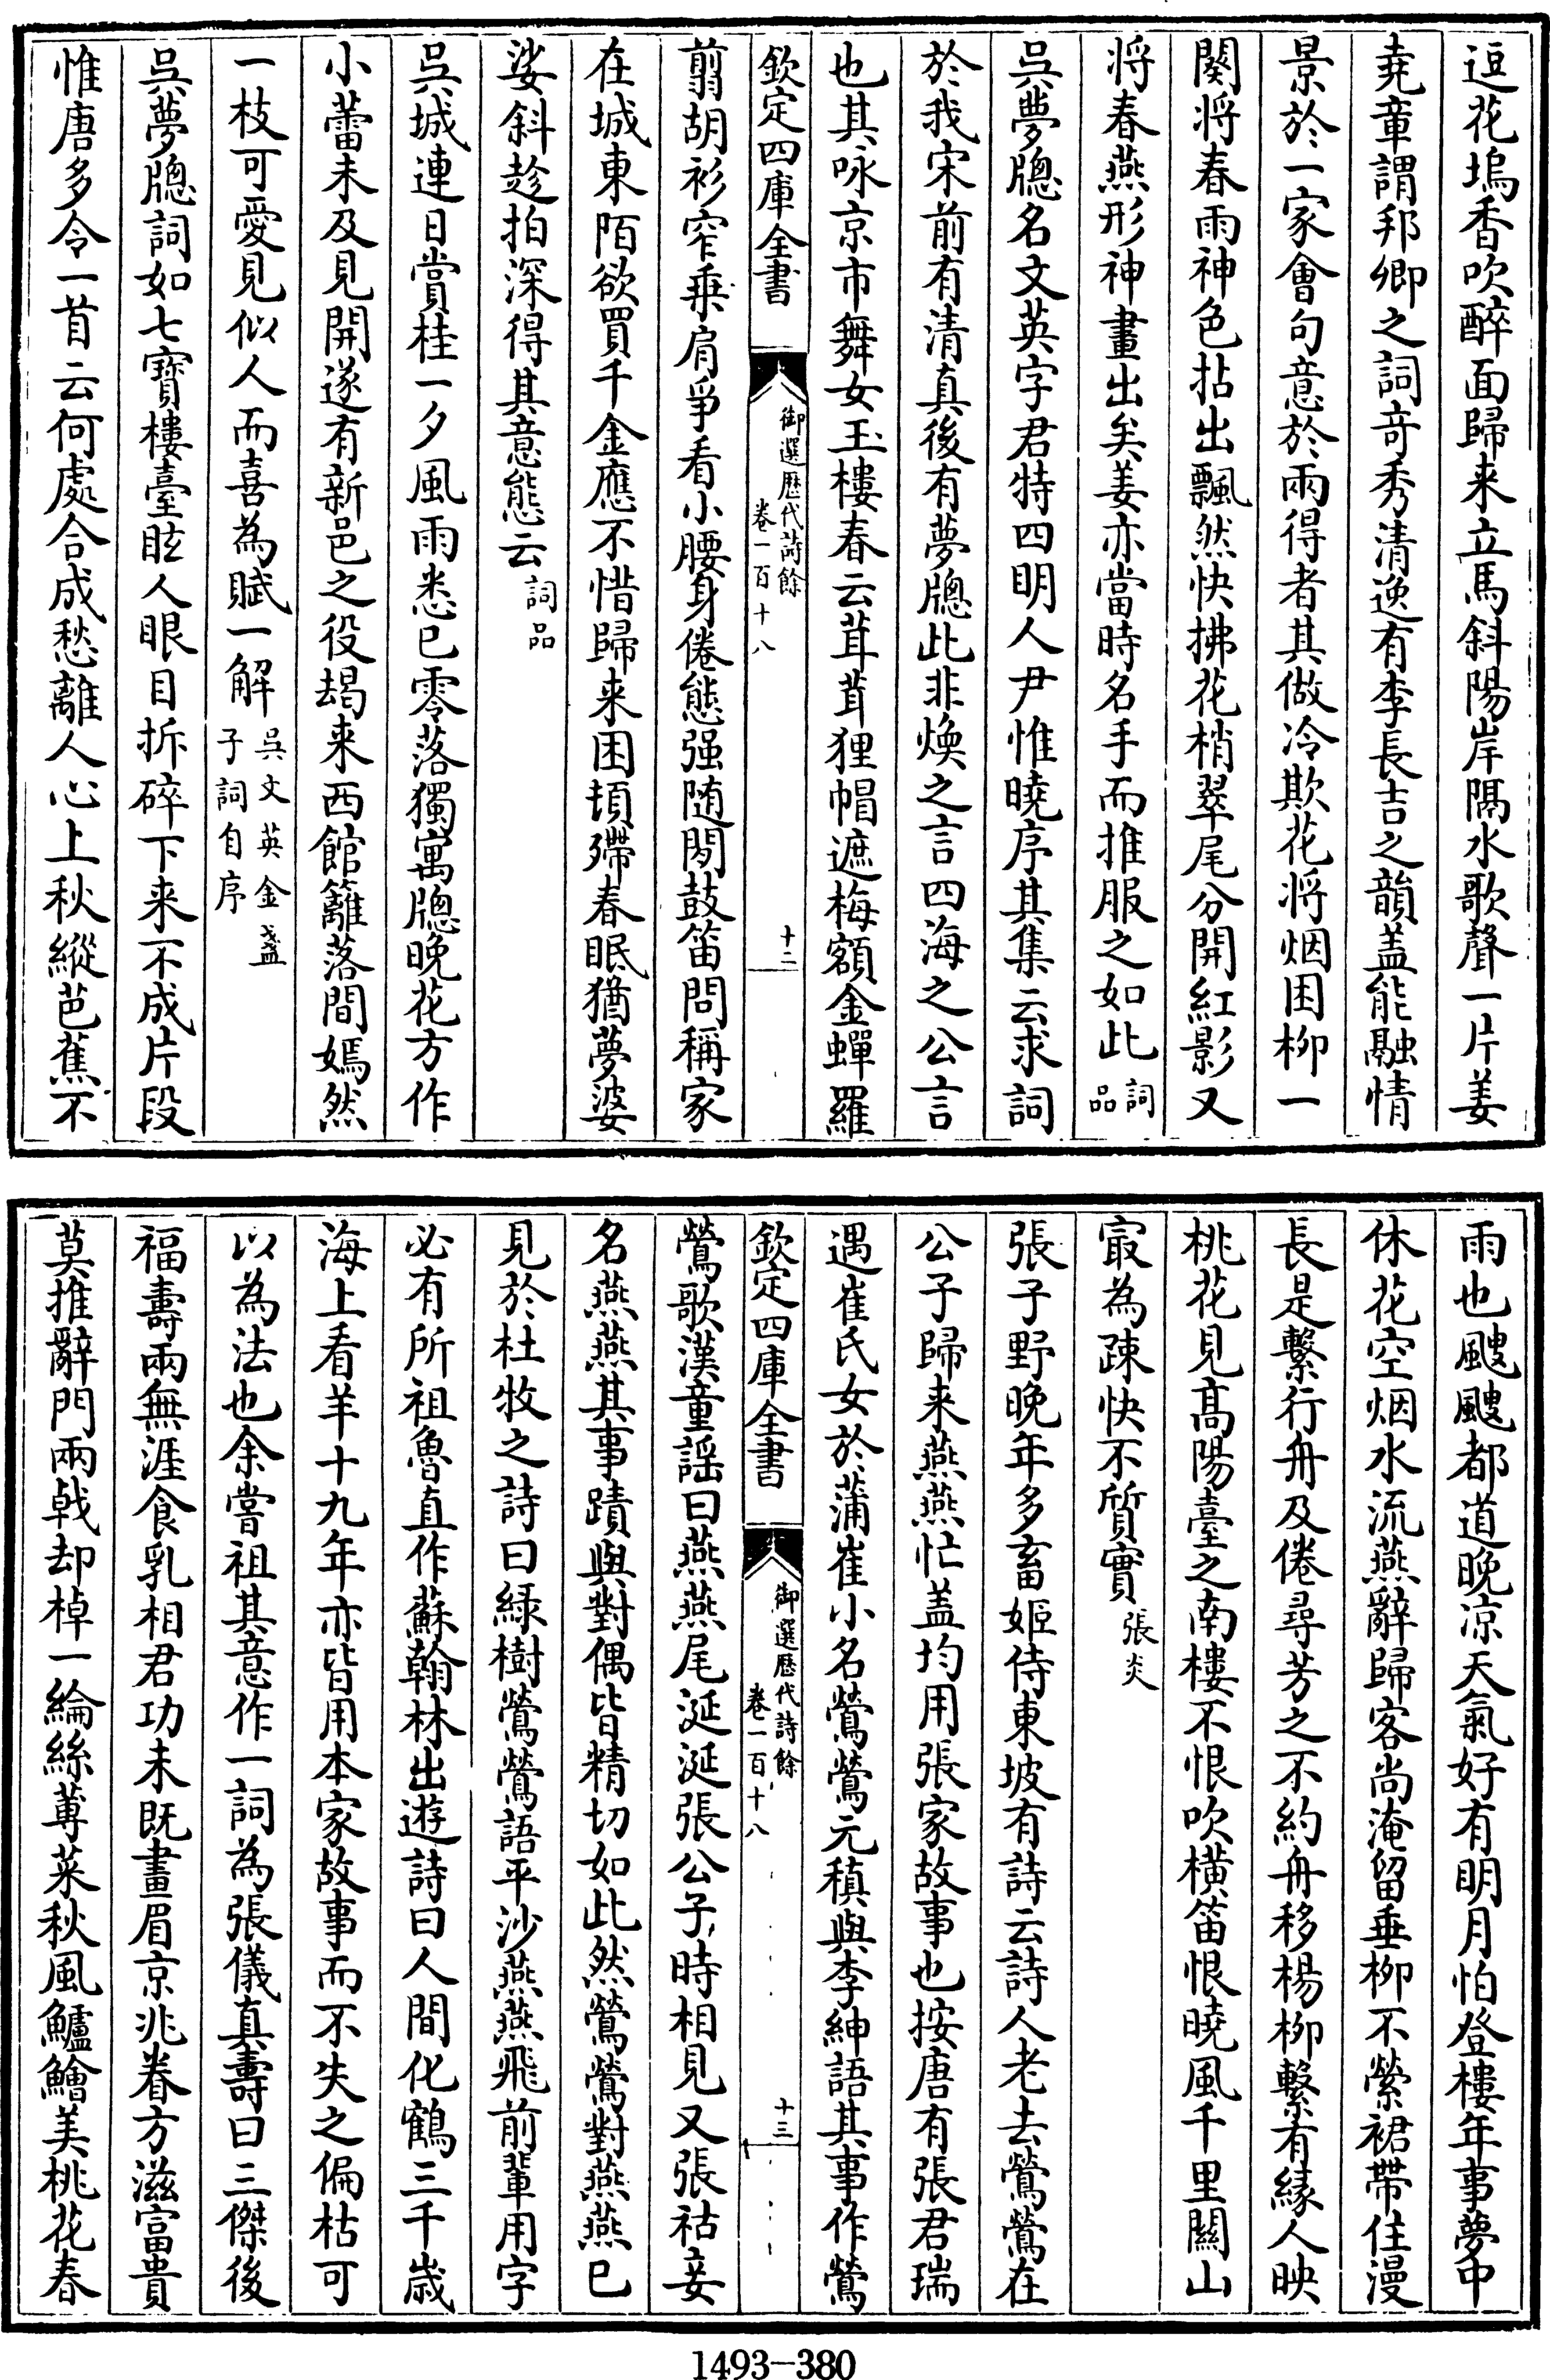 逗花塢香吹醉面歸来立馬斜陽岸隔水歌聲一片姜
堯章謂邦卿之詞竒秀清逸有李長吉之韻盖能融情
景於一家㑹句意於兩得者其做冷欺花将烟困栁一
闋将春雨神色拈出飄然快拂花梢翠尾分開紅影又
将春燕形神畫出矣姜亦當時名手而推服之如此詞品
吳夢牕名文英字君特四明人尹惟曉序其集云求詞
於我宋前有清真後有夢牕此非煥之言四海之公言
也其咏京市舞女玉樓春云茸茸狸帽遮梅額金蟬羅
欽定四庫全書
御選歴代詩餘
卷一百十八
十二
翦胡衫窄乗肩爭看小腰身倦態强随閒鼓笛問稱家
在城東陌欲買千金應不惜歸来困頓殢春眠猶夢婆
娑斜趁拍深得其意態云詞品
吳城連日賞桂一夕風雨悉已零落獨寓牕晚花方作
小蕾未及見開遂有新邑之役朅来西館籬落間嫣然
一枝可愛見似人而喜為賦一解吳文英金盞子詞自序
吳夢牕詞如七寳樓臺眩人眼目拆碎下来不成片段
惟唐多令一首云何處合成愁離人心上秋縱芭蕉不
雨也颼颼都道晚凉天氣好有明月怕登樓年事夢中
休花空烟水流燕辭歸客尚淹留垂栁不縈裙帶住漫
長是繫行舟及倦尋芳之不約舟移楊栁繫有縁人映
桃花見髙陽臺之南樓不恨吹横笛恨曉風千里關山
冣為疎快不質實張炎
張子野晚年多畜姬侍東坡有詩云詩人老去鶯鶯在
公子歸来燕燕忙盖均用張家故事也按唐有張君瑞
遇崔氏女於蒲崔小名鶯鶯元稹與李紳語其事作鶯
欽定四庫全書
御選歴代詩餘
卷一百十八
十三
鶯歌漢童謡曰燕燕尾涎涎張公子時相見又張祜妾
名燕燕其事蹟與對偶皆精切如此然鶯鶯對燕燕已
見於杜牧之詩曰緑樹鶯鶯語平沙燕燕飛前輩用字
必有所祖魯直作蘇翰林出遊詩曰人間化鶴三千歳
海上看羊十九年亦皆用本家故事而不失之偏枯可
以為法也余嘗祖其意作一詞為張儀真壽曰三傑後
福壽兩無涯食乳相君功未既畫眉京兆眷方滋富貴
莫推辭門兩㦸却棹一綸絲蓴菜秋風鱸鱠美桃花春
1493-380